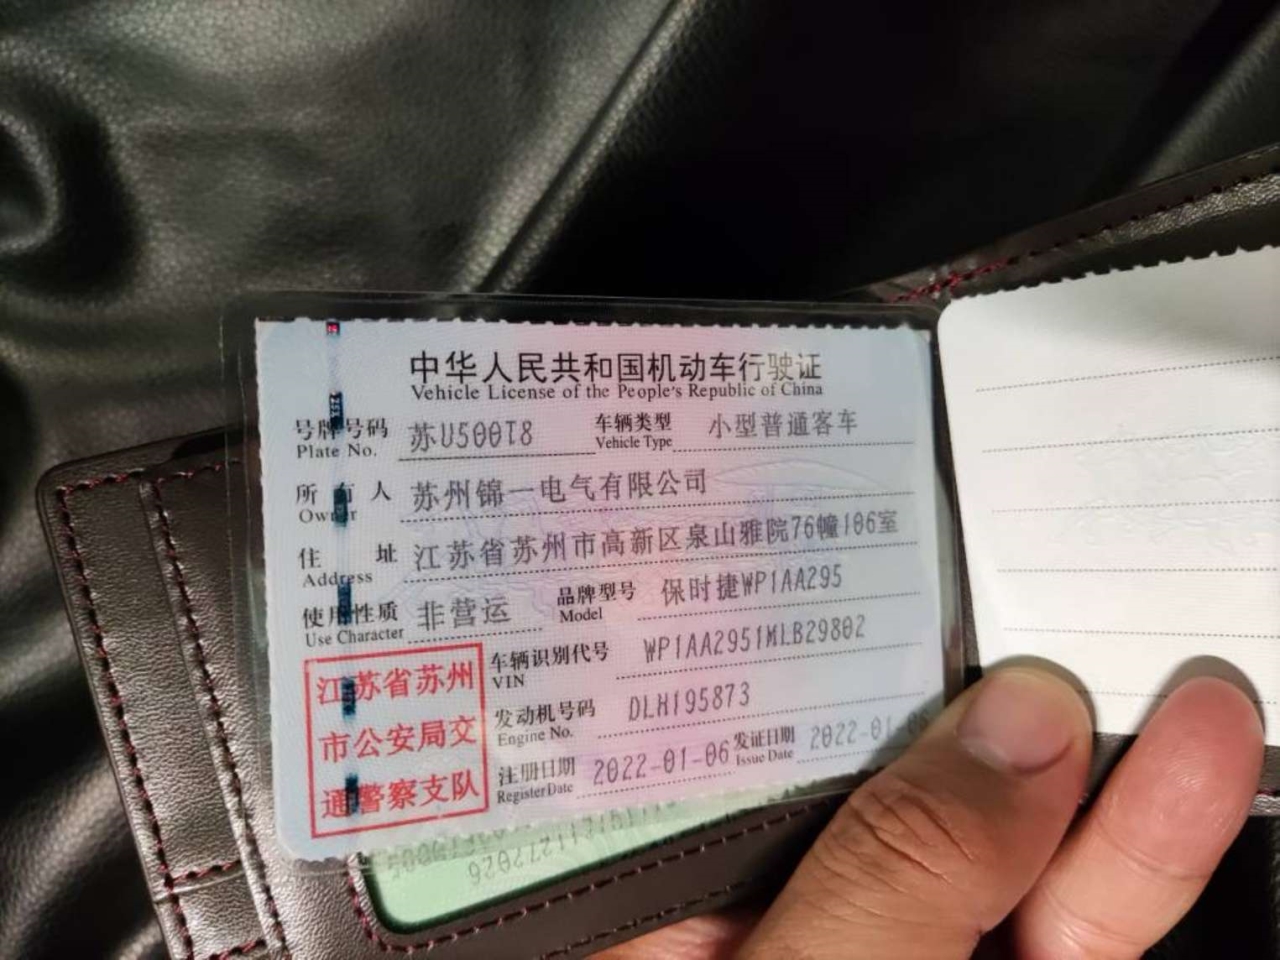 中华人民共和国机动车行驶证
Vehicle License of the People's Republic of China
号牌号码 苏U500T8 车辆类型 小型普通客车
Plate No. Vehicle Type
所有人 苏州锦一电气有限公司
Owner
住址 江苏省苏州市高新区泉山雅院76幢106室
Address
使用性质 非营运 品牌型号 保时捷WP1AA295
Use Character Model
车辆识别代号 WP1AA2951MLB29802
VIN
发动机号码 DLH195873
Engine No.
注册日期 2022-01-06 发证日期 2022-01-06
Register Date Issue Date
江苏省苏州
市公安局交
通警察支队